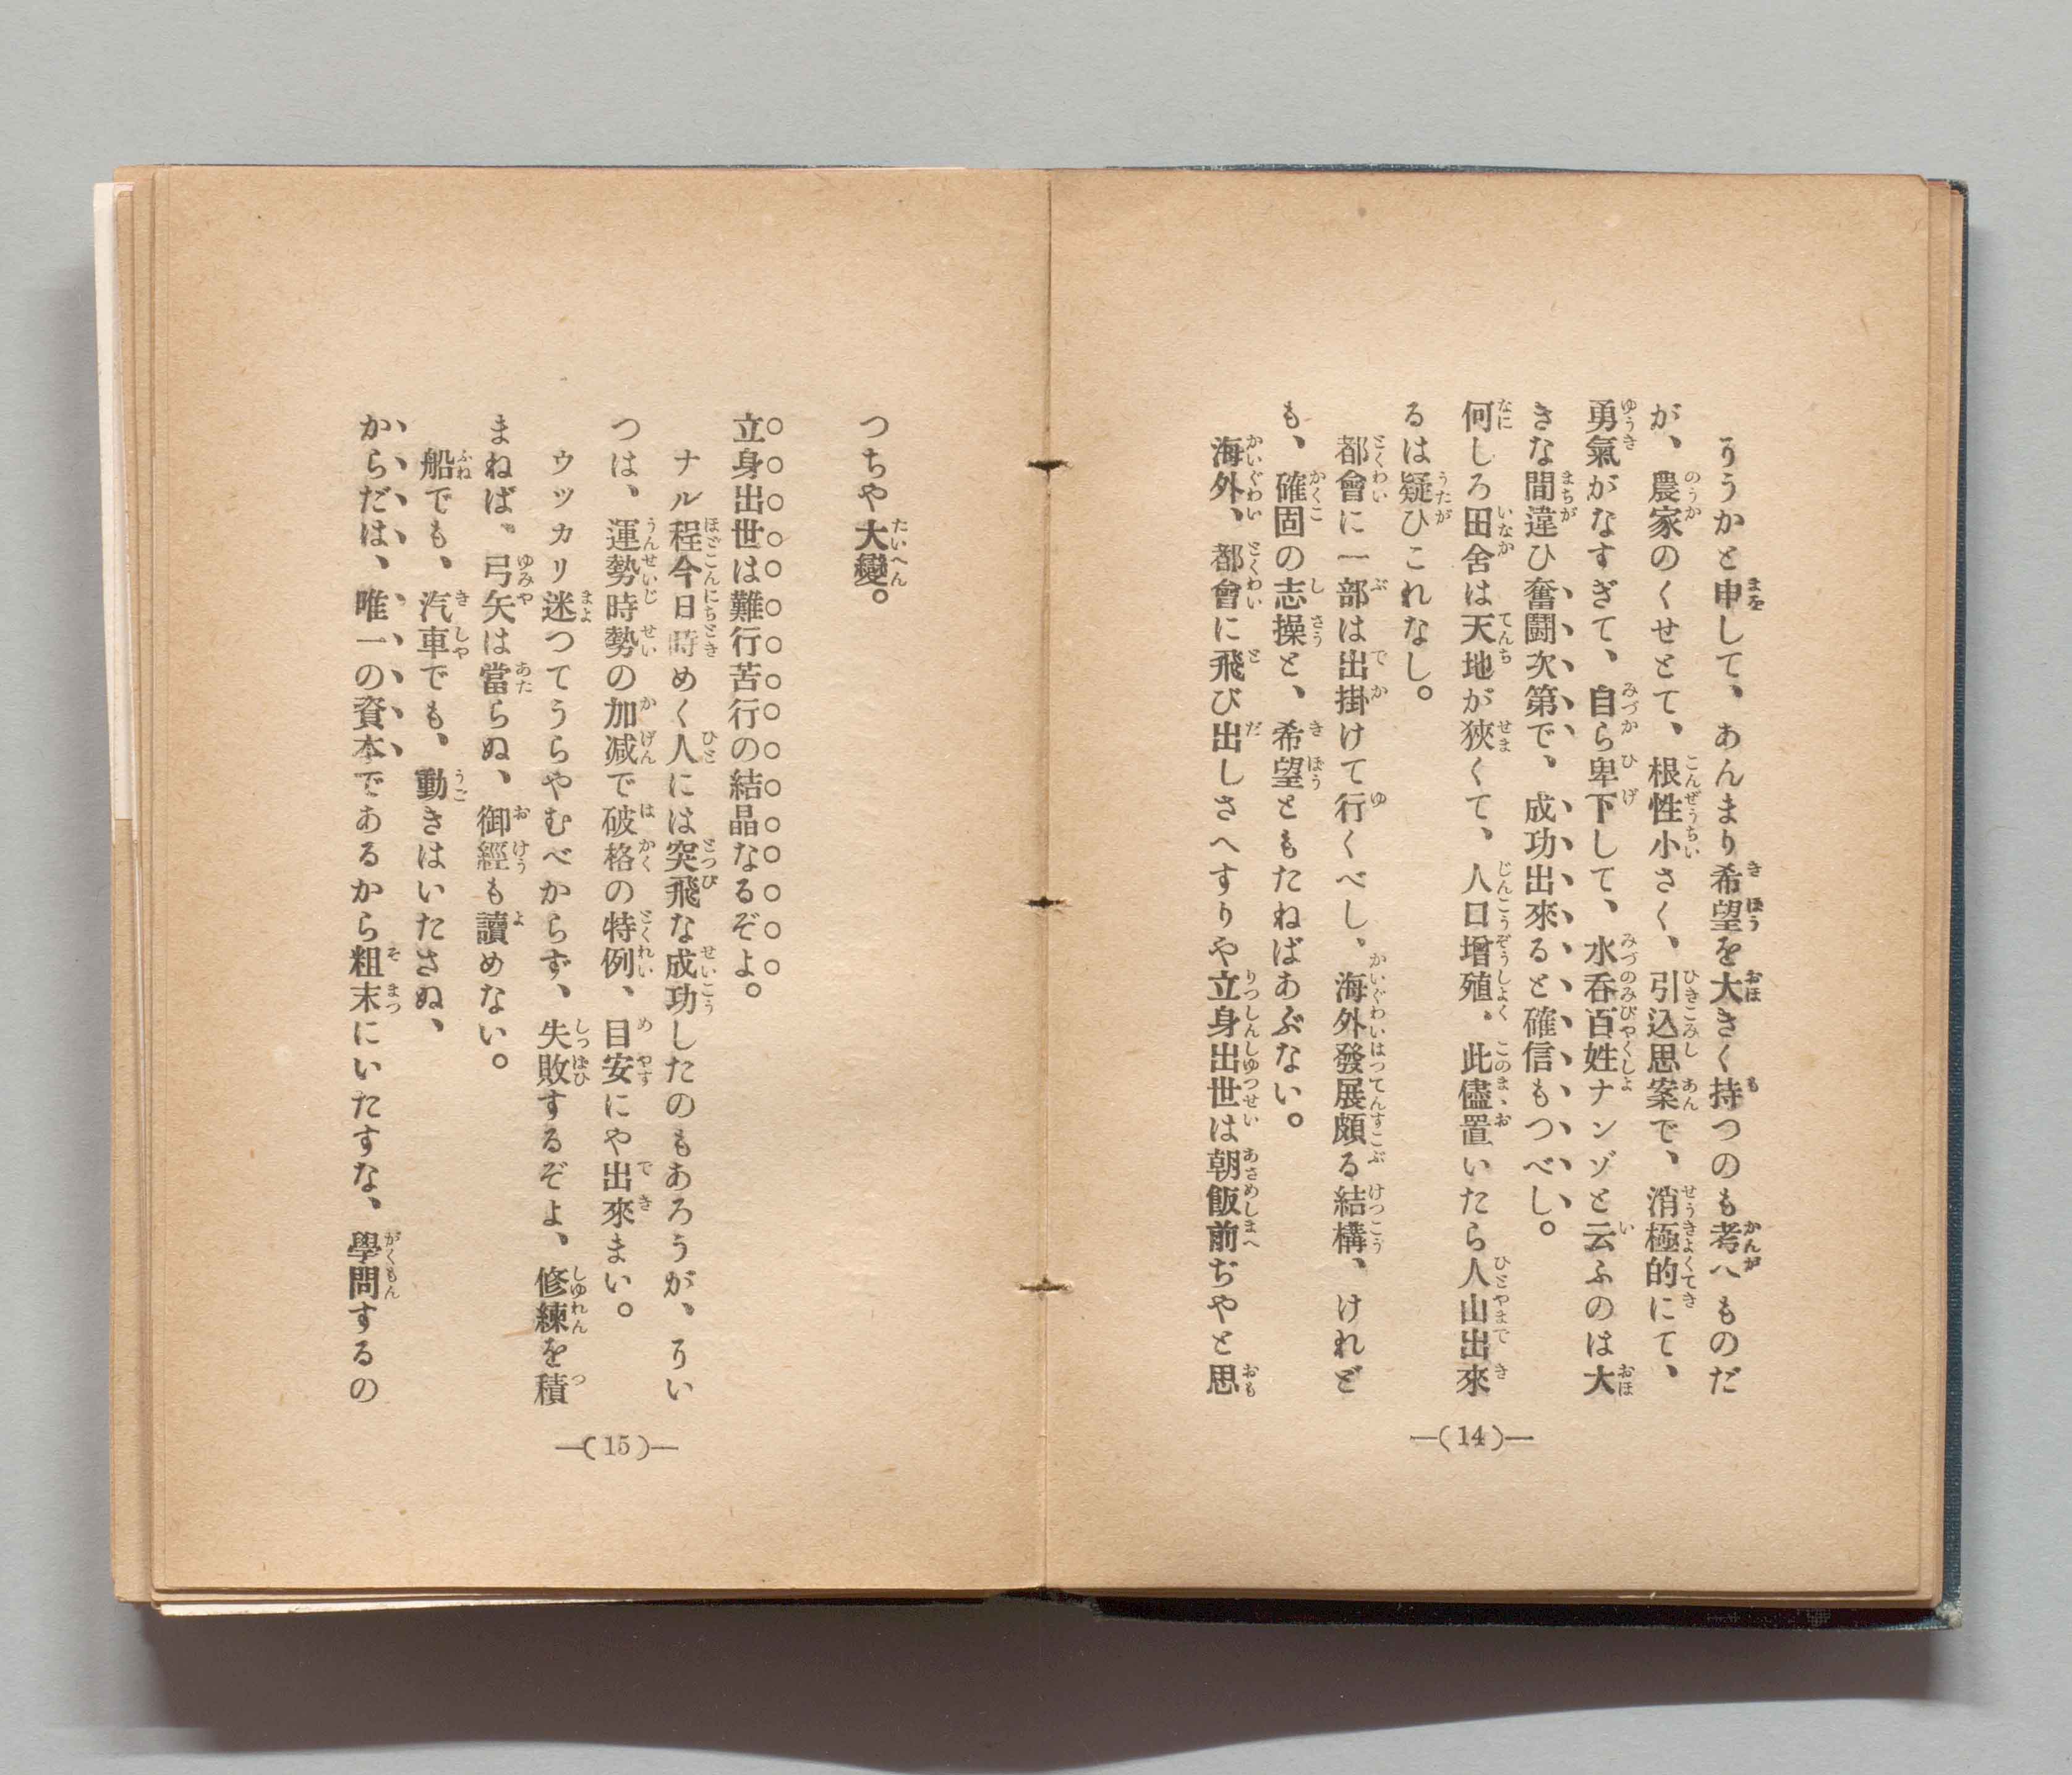 りうかと申して、あんまり希望を大きく持つのも考へものだ
が、農家のくせとて、根性小さく、引込思案で、消極的にて、
勇氣がなすぎて、自ら卑下して、水呑百姓ナンゾと云ふのは大
きな間違ひ奮鬪次第で、成功出來ると確信もつべし。
何しろ田舍は天地が狹くて、人口增殖、此儘置いたら人山出來
るは疑ひこれなし。
都會に一部は出掛けて行くべし、海外發展頗る結構、けれど
も、確固の志操と、希望ともたねばあぶない。
海外、都會に飛び出しさへすりや立身出世は朝飯前ぢやと思
—(14)—
つちや大變。
立身出世は難行苦行の結晶なるぞよ。
ナル程今日時めく人には突飛な成功したのもあろうが、りい
つは、運勢時勢の加減で破格の特例、目安にや出來まい。
ウツカリ迷つてうらやむべからず、失敗するぞよ、修練を積
まねば、弓矢は當らぬ、御經も讀めない。
船でも、汽車でも、動きはいたさぬ、
からだは、唯一の資本であるから粗末にいたすな、學問するの
—(15)—